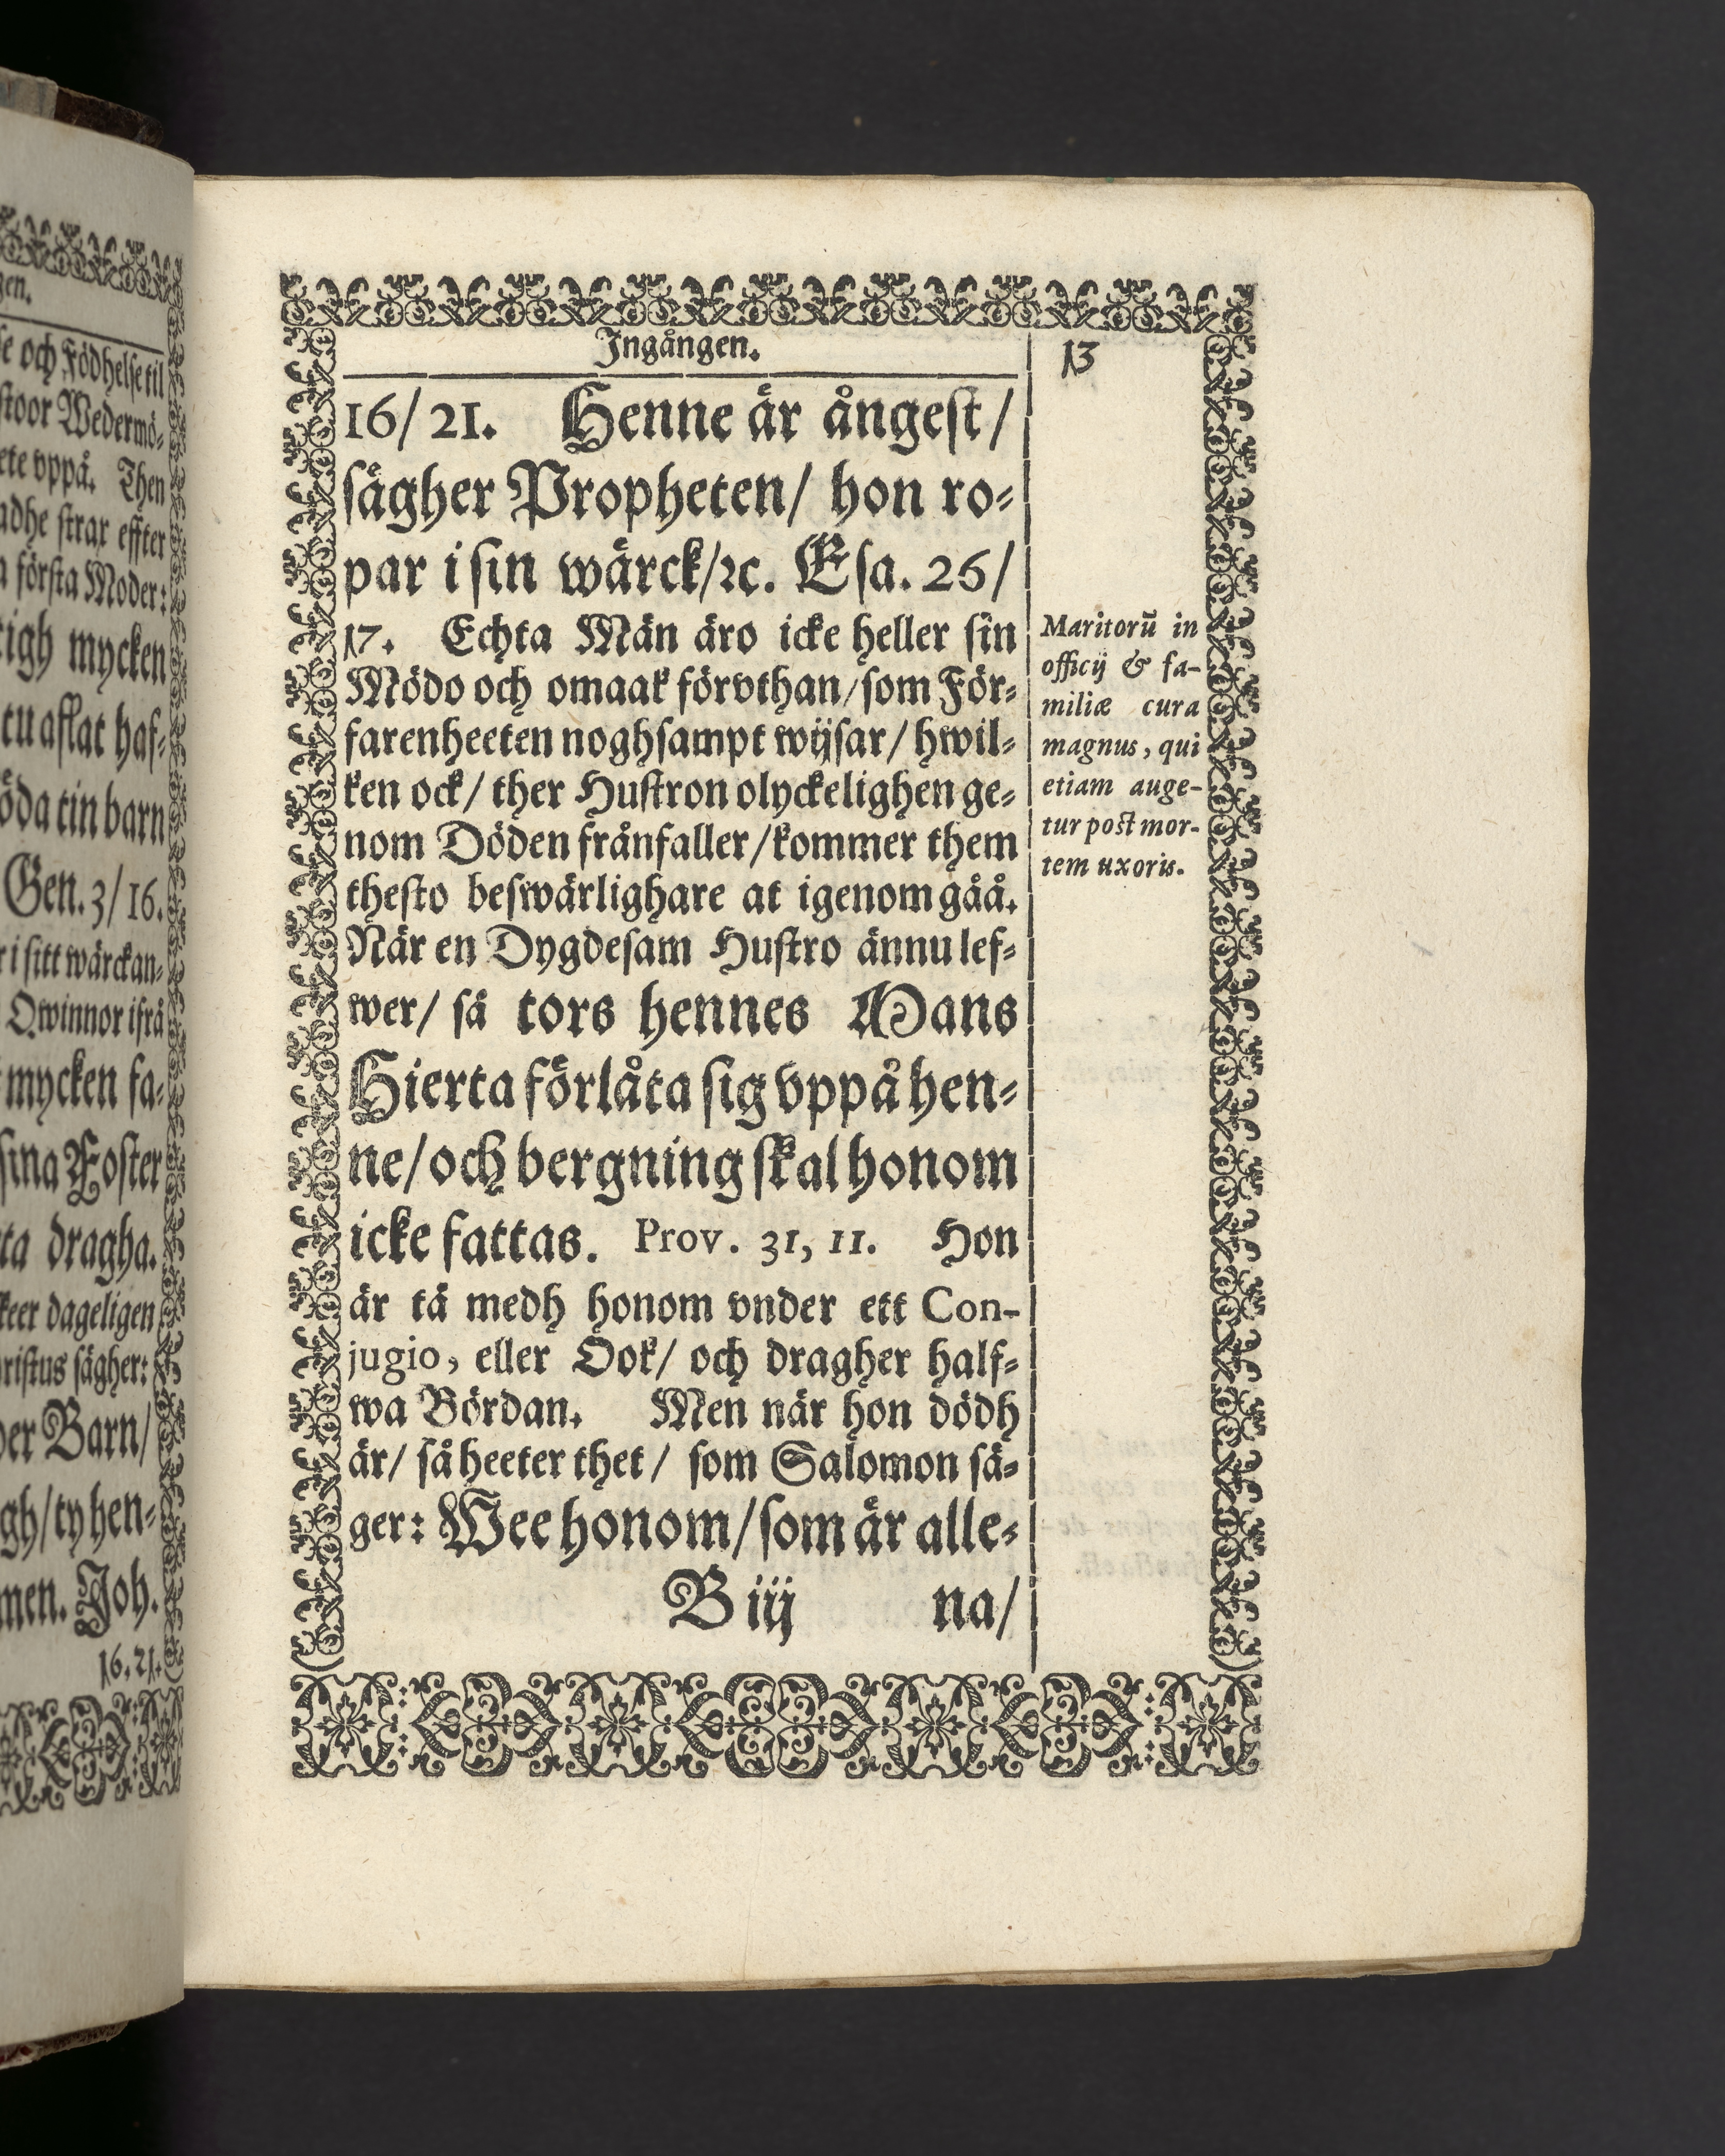 gen.
e och Födhelse til
stoor Wedermö⸗
ete vppå. Then
adhe strax effter
a första Moder:
igh mycken
tu aflat haf⸗
öda tin barn
Gen. 3/16.
r i sitt wärckan⸗
Qwinnor ifrå
mycken fa⸗
sina Foster
ta dragha.
keer dageligen
ristus sägher:
der Barn/
gh/ty hen⸗
men. Joh.
16.21.
Ingången.
13
16/21. Henne är ångest/
sägher Propheten/ hon ro⸗
par i sin wärck/ꝛc. Esa. 26/
17. Echta Män äro icke heller sin
Mödo och omaak förvthan/som För⸗
farenheeten noghsampt wijsar/ hwil⸗
ken ock/ ther Hustron olyckelighen ge⸗
nom Döden frånfaller/kommer them
thesto beswärlighare at igenom gåå.
När en Dygdesam Hustro ännu lef⸗
wer/ så tors hennes Mans
Hierta förlåta sig vppå hen⸗
ne/och bergning skal honom
icke fattas. Prov. 31, 11. Hon
är tå medh honom vnder ett Con-
jugio, eller Ook/ och dragher half⸗
wa Bördan. Men när hon dödh
är/ så heeter thet/ som Salomon sä⸗
ger: Wee honom/som är alle⸗
B iij na/
Maritorū in
officij & fa-
miliæ cura
magnus, qui
etiam auge-
tur post mor-
tem uxoris.